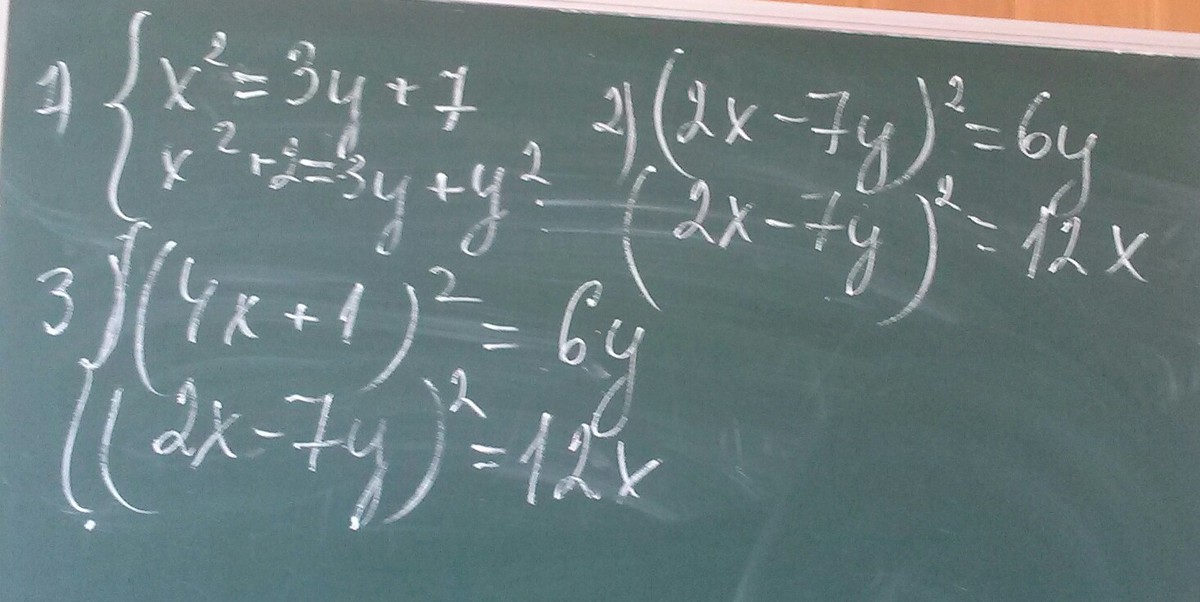 1) { x² = 3y + 7
x² + 2 = 3y + y²
2) (2x - 7y)² = 6y
(2x - 7y)² = 12x
3) { (4x + 1)² = 6y
(2x - 7y)² = 12x